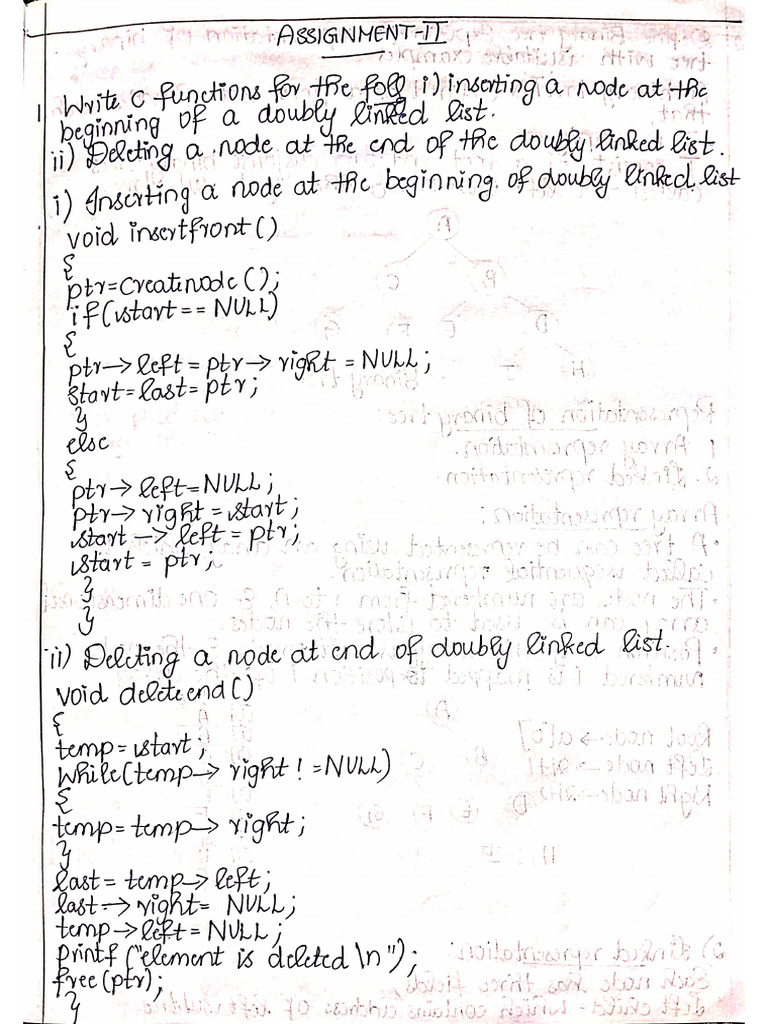 ASSIGNMENT-II
1 Write C functions for the foll i) inserting a node at the
beginning of a doubly linked list.
ii) Deleting a node at the end of the doubly linked list.
i) Inserting a node at the beginning of doubly linked list
void insertfront()
{
ptr=Createnode();
if(start == NULL)
{
ptr→left = ptr→right = NULL;
start=last=ptr;
}
else
{
ptr→left=NULL;
ptr→right=start;
start→left=ptr;
start = ptr;
}
}
ii) Deleting a node at end of doubly linked list.
void deleteend()
{
temp=start;
While(temp→right!=NULL)
{
temp=temp→right;
}
last = temp→left;
last→right= NULL;
temp→left=NULL;
printf("element is deleted \n");
free(ptr);
}